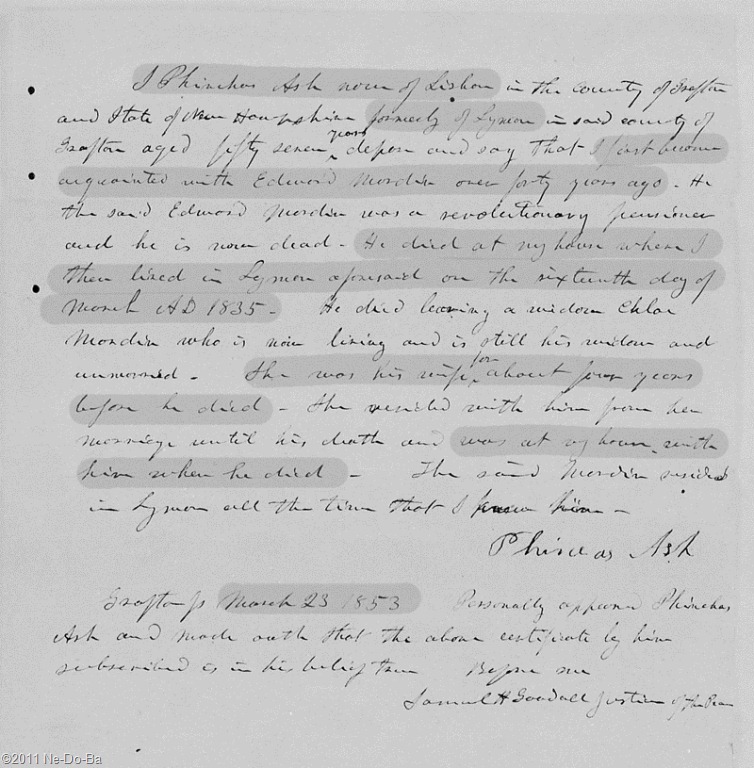 I Phinehas Ash now of Lisbon in the county of Grafton
and State of New Hampshire formerly of Lyman in said county of
Grafton aged fifty seven years depose and say that I first become
acquainted with Edward Mordin over forty years ago. He
the said Edward Mordin was a revolutionary pensioner
and he is now dead - He died at my house where I
then lived in Lyman aforesaid on the sixteenth day of
March AD 1835 - He died leaving a widow Chloe
Mordin who is now living and is still his widow and
unmarried - She was his wife for about four years
before he died - She resided with him from her
marriage until his death and was at my house with
him when he died - The said Mordin resided
in Lyman all the time that I knew him -
Phinehas Ash
Grafton ss March 23 1853 Personally appeared Phinehas
Ash and made oath that the above certificate by him
subscribed is in his belief true Before me
Samuel H Goodall Justice of the Peace
©2011 Ne-Do-Ba